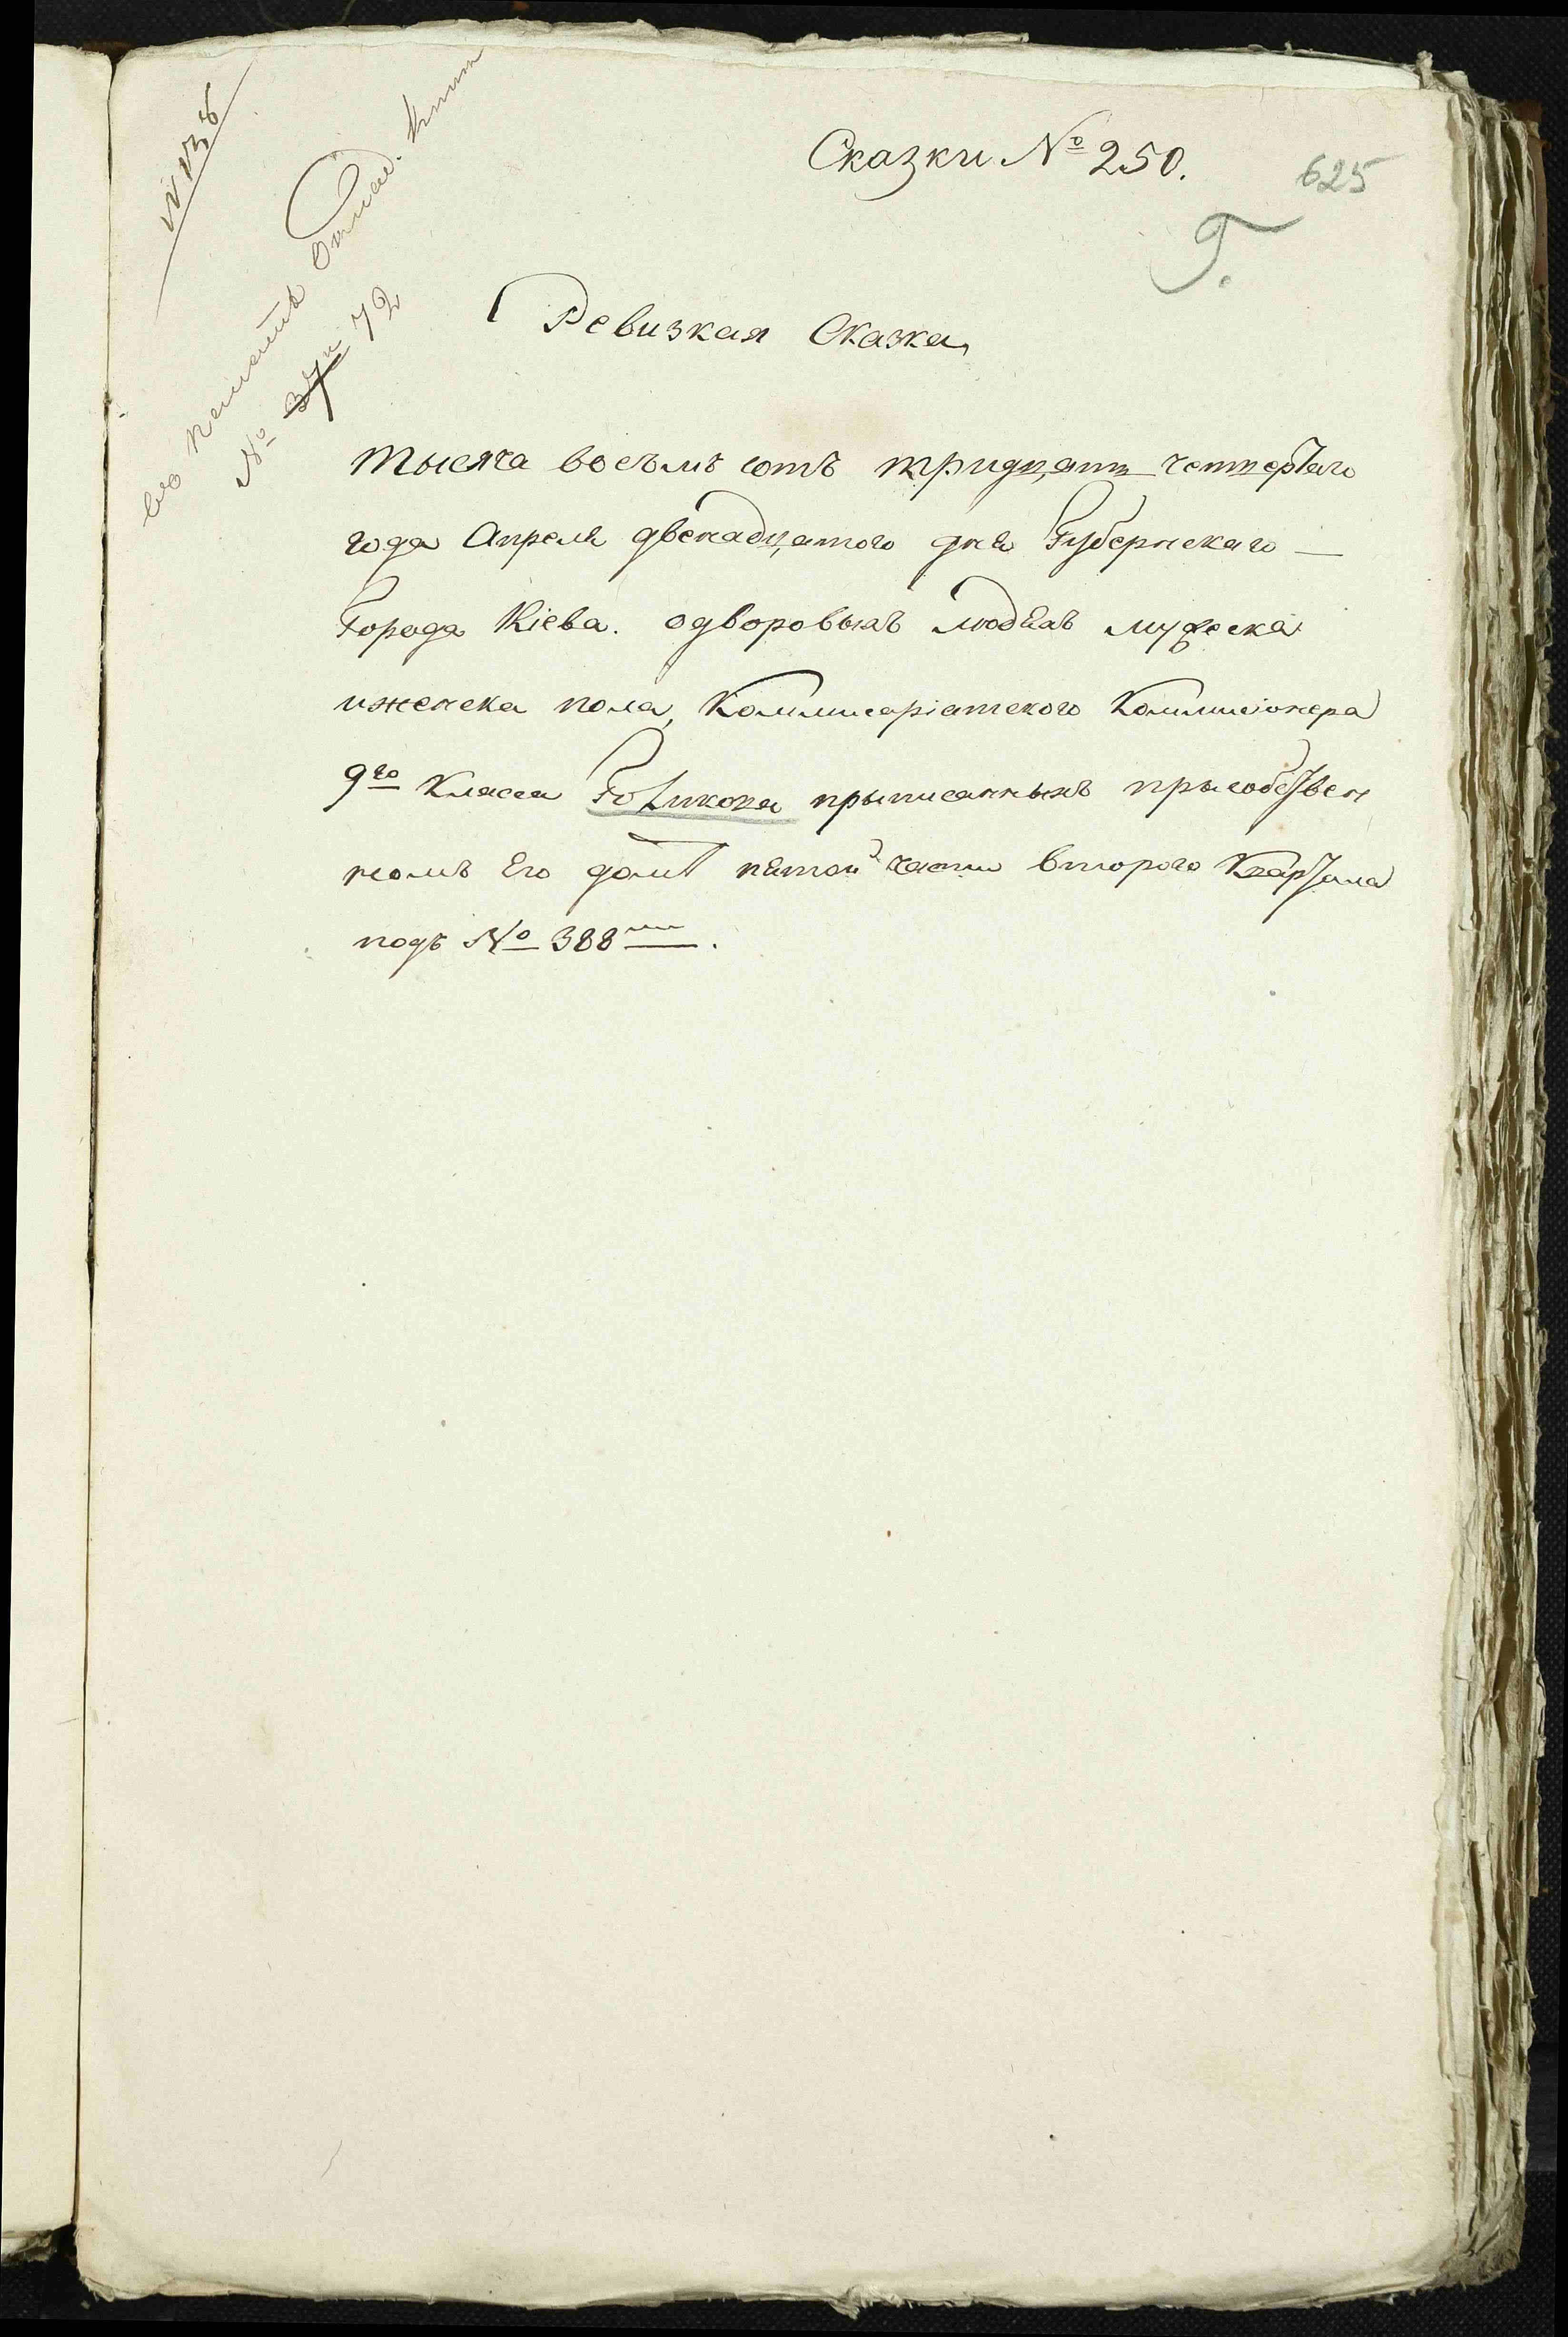 Сказки № 250.
625
Г.
№ 138
№ 72
Ревизкая Сказка
Тысяча восъмъ сотъ тридцать четвертаго
года Апреля двенадцатого дня Губернскаго —
Города Кіева. одворовыхъ людяхъ мужеска
иженска пола, Коммисаріатского Коммисіонера
9го Класса Готикова прыписанныхъ прысобствен
номъ Его доме пятой части второго Квартала
подъ № 388мъ.